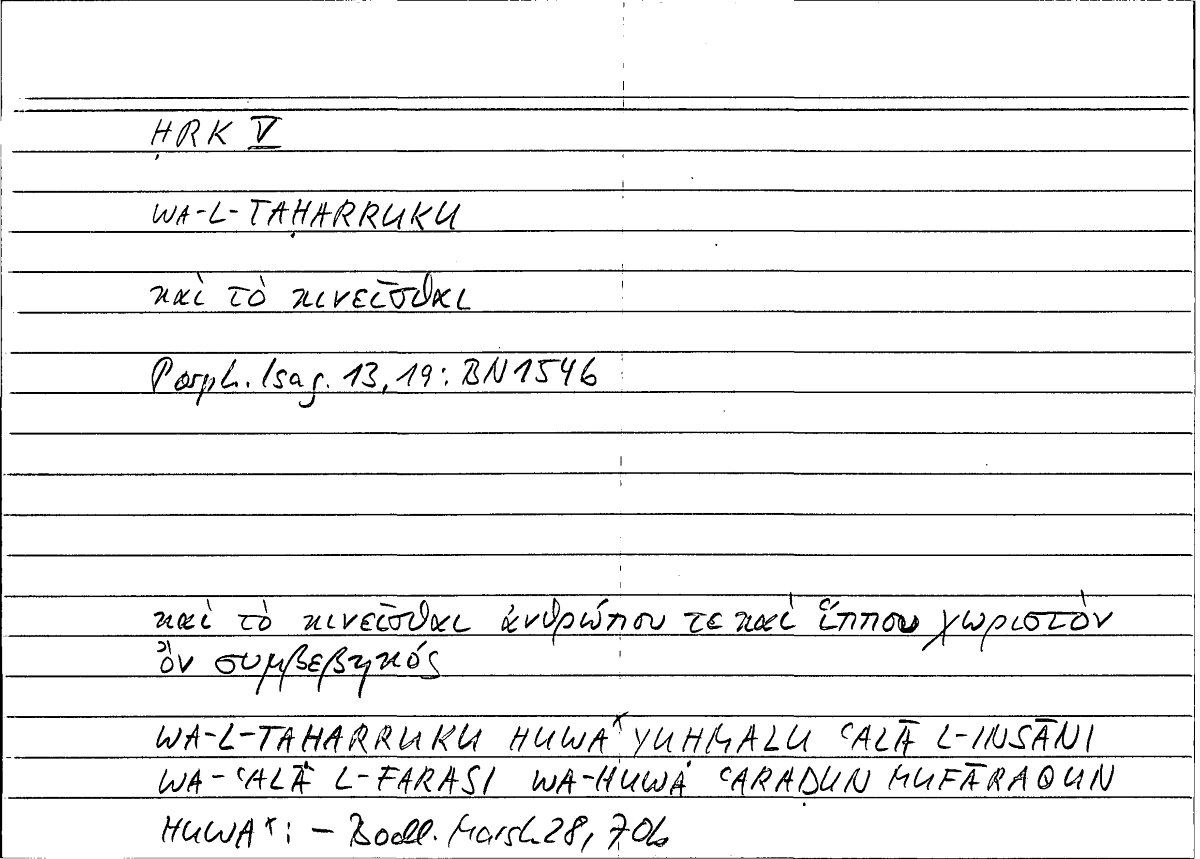 ḤRK V
WA-L-TAḤARRUKU
καὶ τὸ κινεῖσθαι
Porph. Isag. 13, 19: BN 154b
καὶ τὸ κινεῖσθαι ἀνθρώπου τε καὶ ἵππου χωριστὸν
ὂν συμβεβηκός
WA-L-TAHARRUKU HUWAˣ YUHMALU ʿALĀ L-INSĀNI
WA-ʿALĀ L-FARASI WA-HUWA ʿARAḌUN MUFĀRAQUN
HUWAˣ: – Bodl. Marsh. 28, 70b